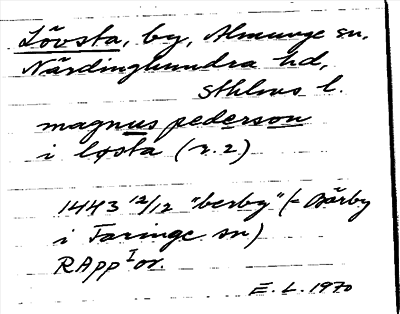 Lövsta, by, Almunge sn,
Närdinghundra hd,
Sthlms l.
magnus pederson
i løsta (r. 2)
1443 12/12 "berby" (= Bärby
i Faringe sn)
RApp I or.
E. L. 1970